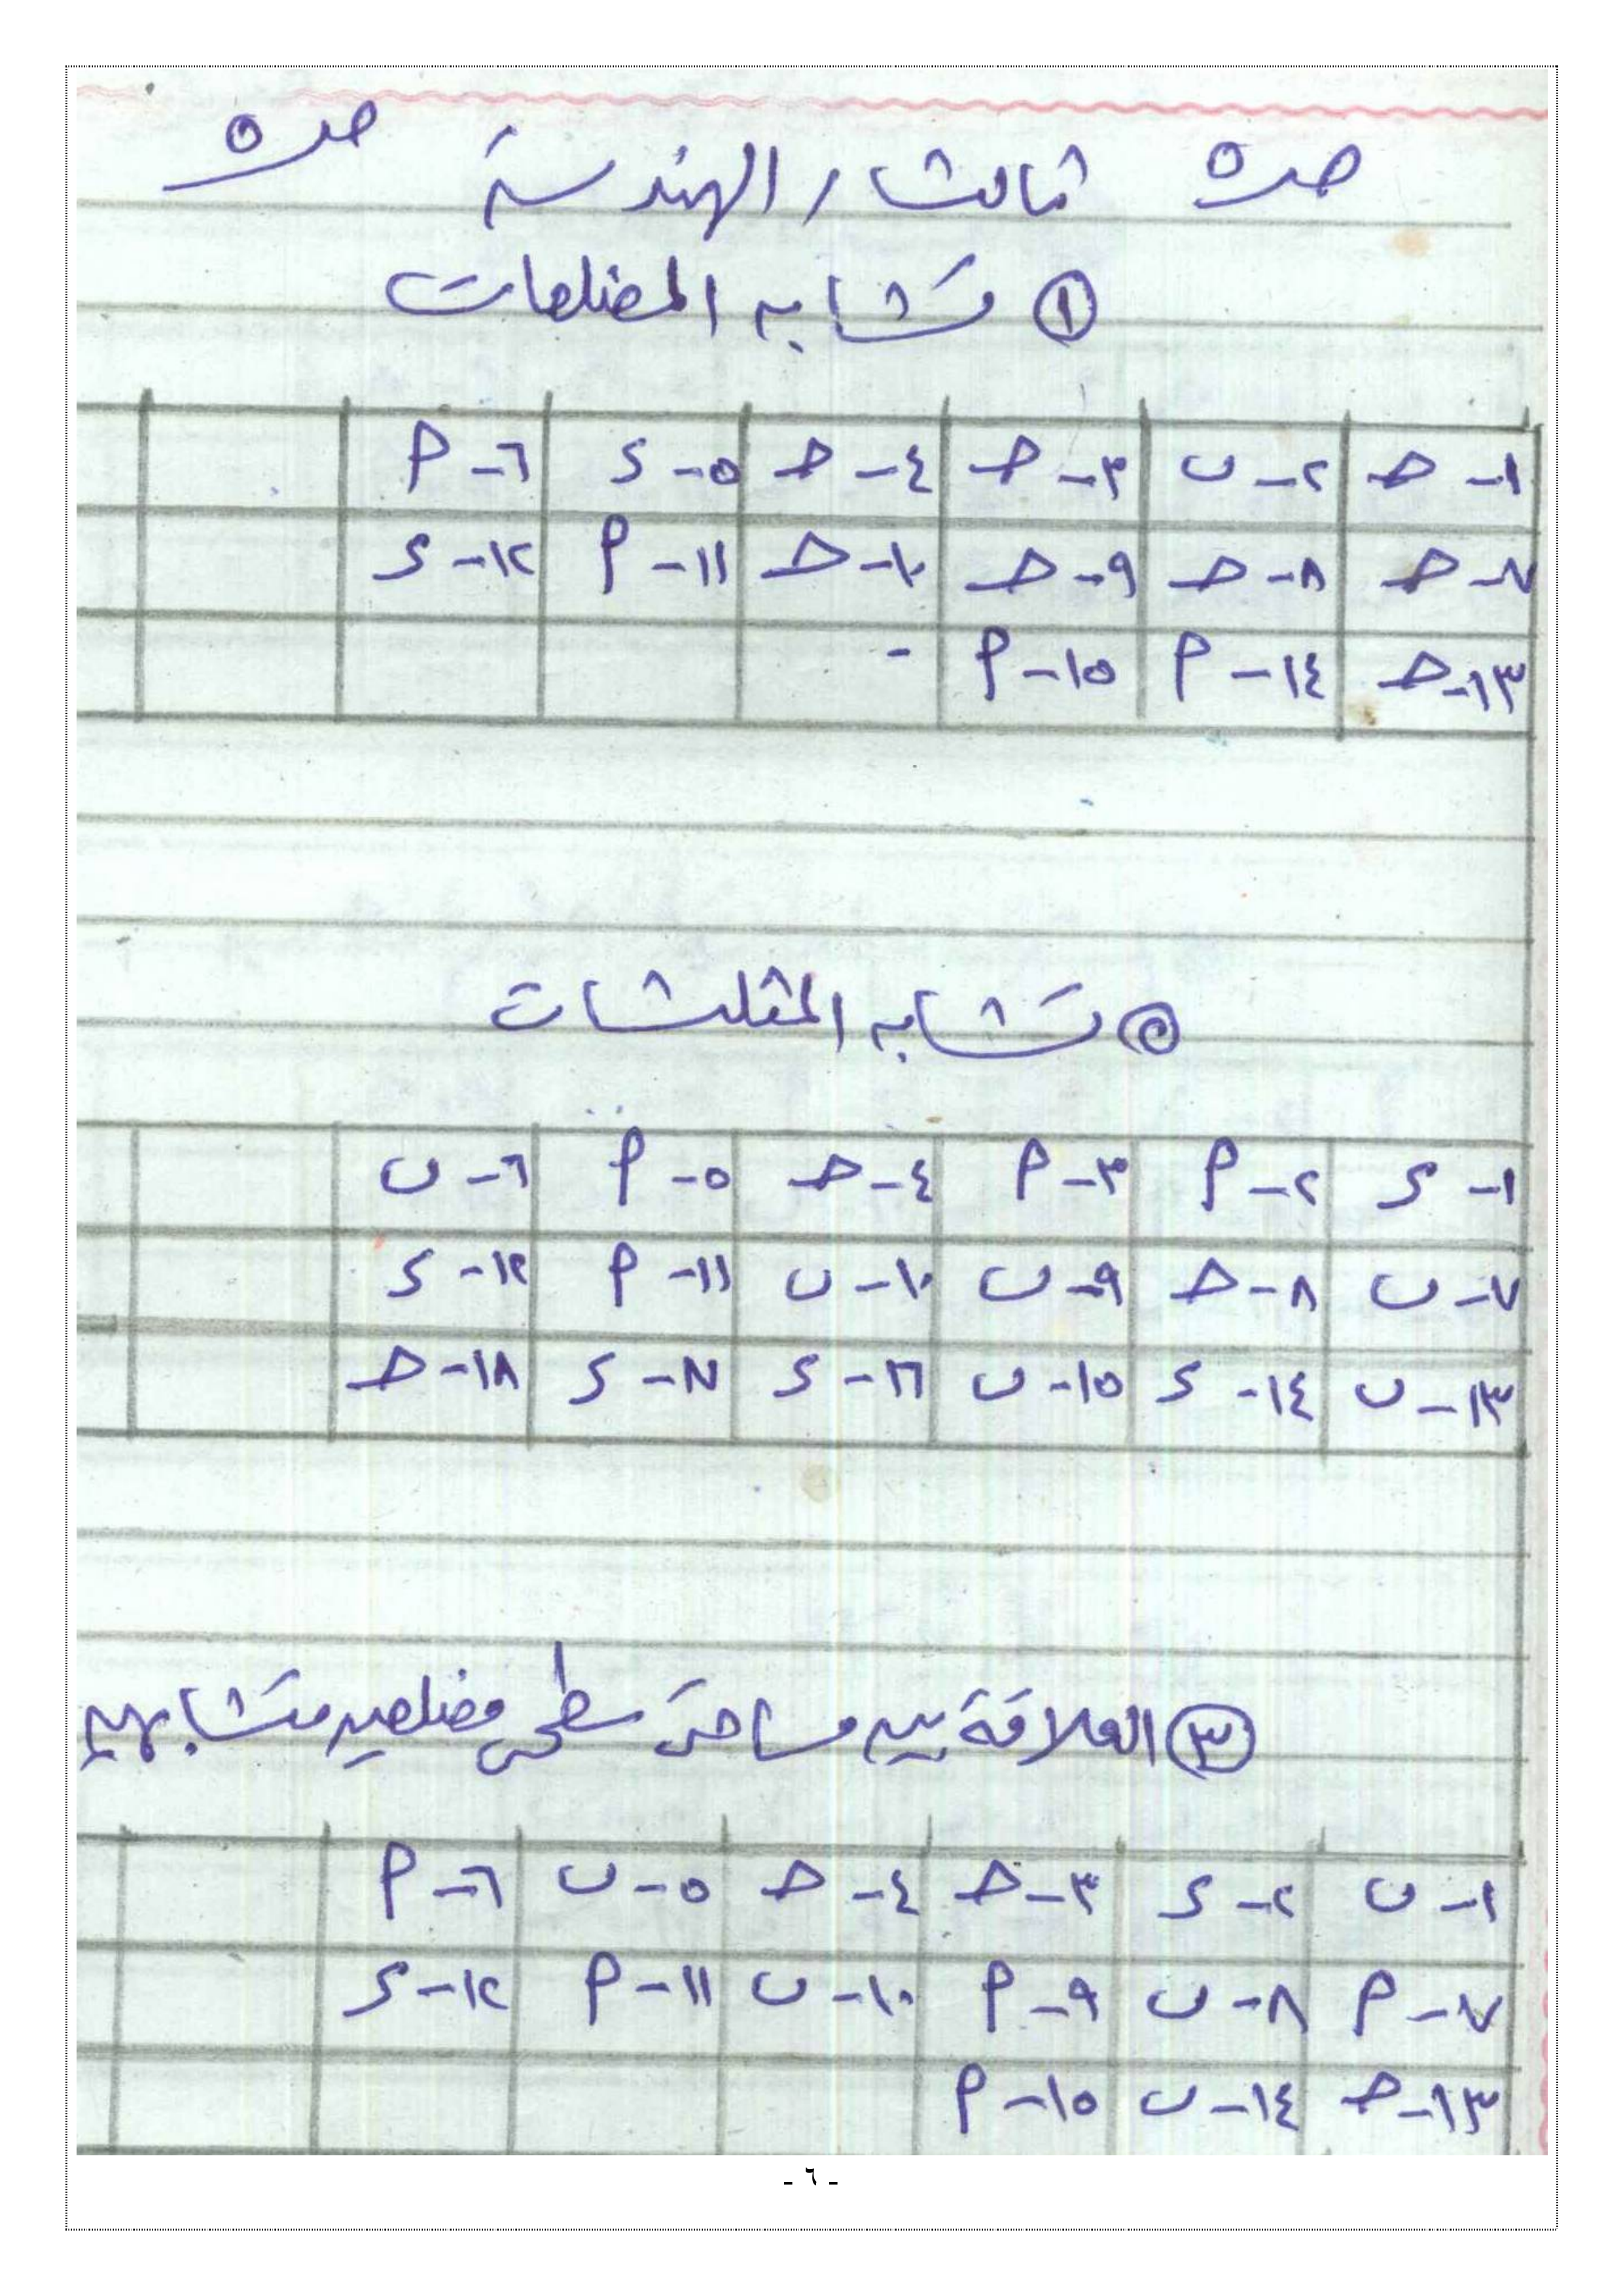 صـ٥ ثالثا / الهندسة صـ٥
١ تشابه المضلعات
١- حـ ٢- ب ٣- حـ ٤- حـ ٥- د ٦- م
٧- حـ ٨- حـ ٩- حـ ١٠- حـ ١١- م ١٢- د
١٣- حـ ١٤- م ١٥- م -
٥ تشابه المثلثات
١- د ٢- م ٣- م ٤- حـ ٥- م ٦- ب
٧- ب ٨- حـ ٩- ب ١٠- ب ١١- م ١٢- د
١٣- ب ١٤- د ١٥- ب ١٦- د ١٧- د ١٨- حـ
٣ العلاقة بين مساحتى سطحى مضلعين متشابهين
١- ب ٢- د ٣- حـ ٤- حـ ٥- ب ٦- م
٧- م ٨- ب ٩- م ١٠- ب ١١- م ١٢- د
١٣- حـ ١٤- ب ١٥- م
- ٦ -